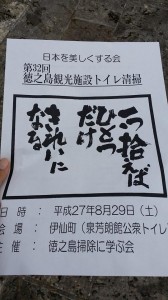 日本を美しくする会
第32回
徳之島観光施設トイレ清掃
一つ拾えば
ひとつ
だけ
きれいに
なる
日 時： 平成27年8月29日（土）
会 場： 伊仙町（泉芳朗館公衆トイレ）
主 催： 徳之島掃除に学ぶ会